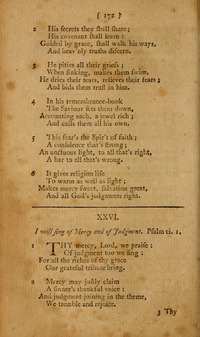 ( 172 )
2 His secrets they shall share;
His covenant shall learn:
Guided by grace, shall walk his ways,
And know his truths discern.
3 He pities all their griefs;
When sinking, makes them swim.
He dries their tears, relieves their fears;
And bids them trust in him.
4 In his remembrance-book
The Saviour sets them down,
Accounting each, a jewel rich;
And calls them all his own.
5 This fear's the Spir't of faith;
A confidence that's strong;
An unctuous light, to all that's right,
A bar to all that's wrong.
6 It gives religion life
To warm as well as light;
Makes mercy sweet, salvation great,
And all God's judgments right.
XXVI.
I will sing of Mercy and of Judgment. Psalm ci. 1.
1 THY mercy, Lord, we praise:
Of judgment too we sing:
For all the riches of thy grace
Our grateful tribute bring.
2 Mercy may justly claim
A sinner's thankful voice:
And judgment joining in the theme,
We tremble and rejoice.
3 Thy